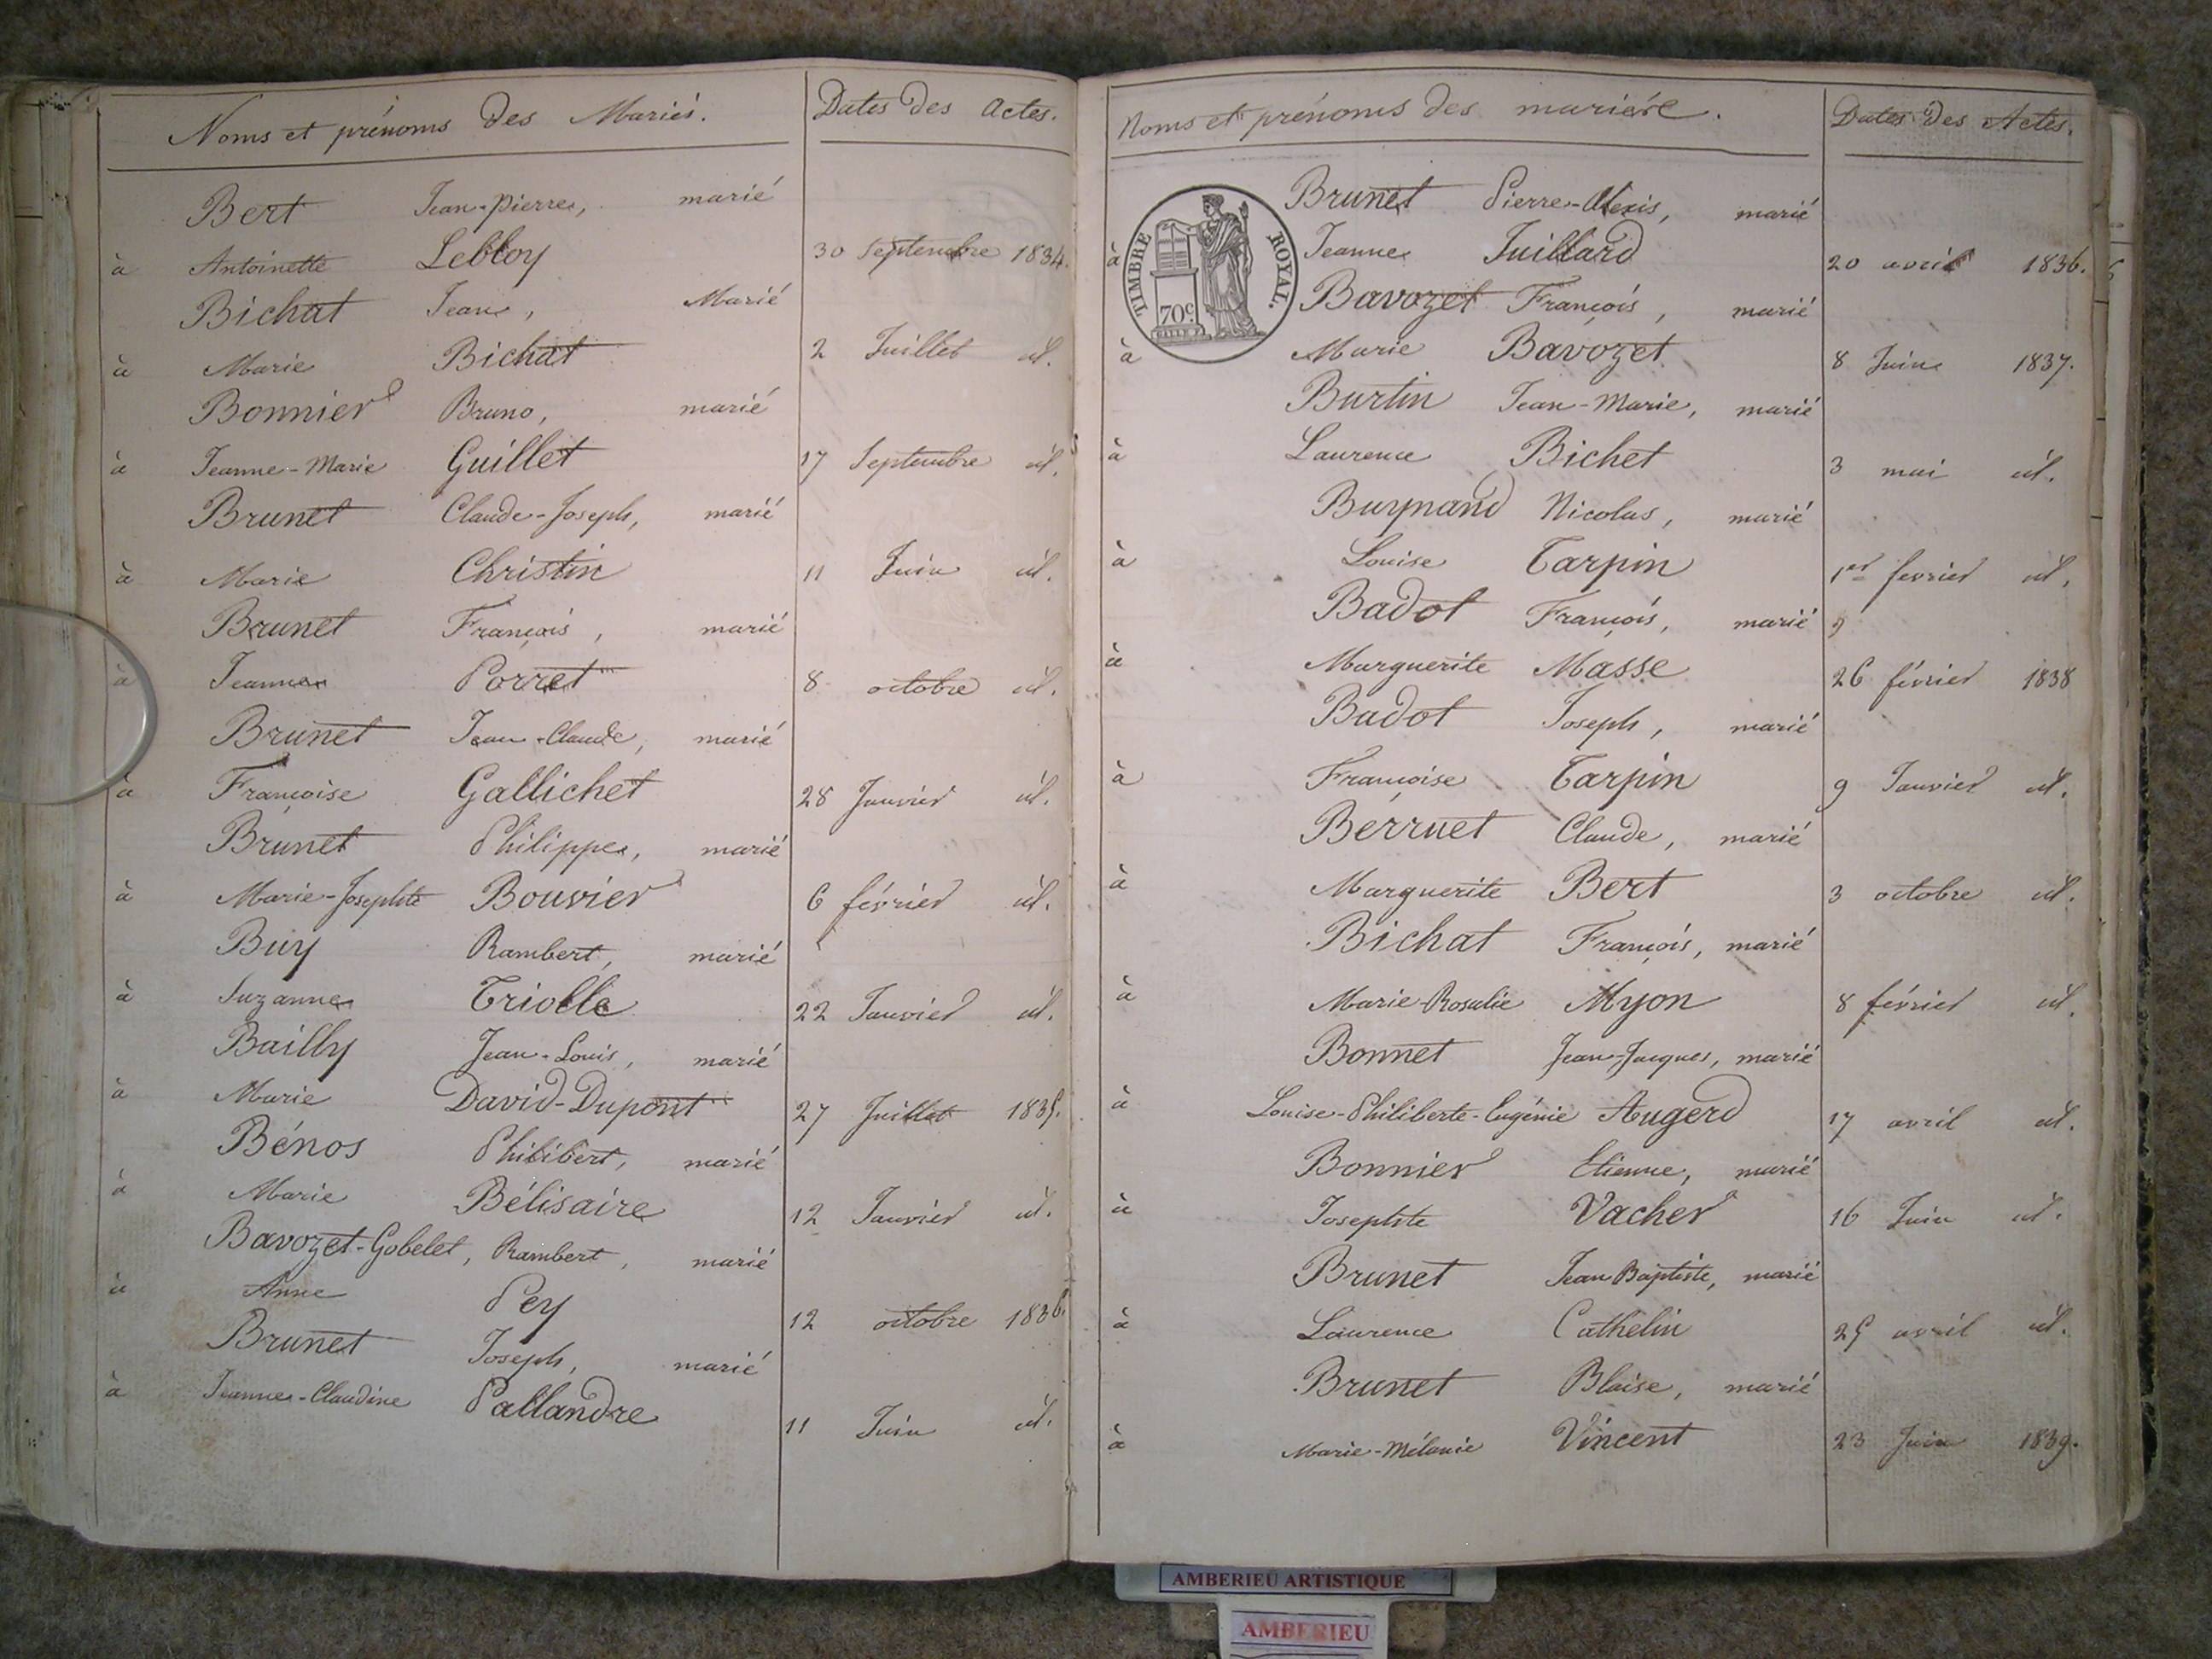 Noms et prénoms des Mariés.
Dates des Actes.
Bert Jean-pierre, marié
à Antoinette Lebloy 30 Septembre 1834.
Bichat Jean, Marié
à Marie Bichat 2 Juillet id.
Bonnier Bruno, marié
à Jeanne-Marie Guillet 17 Septembre id.
Brunet Claude-Joseph, marié
à Marie Christin 11 Juin id.
Brunet François, marié
à Jeanne Porret 8 octobre id.
Brunet Jean-Claude, marié
à Françoise Gallichet 28 Janvier id.
Brunet Philippe, marié
à Marie-Josephte Bouvier 6 février id.
Buy Rambert, marié
à Suzanne Triolle 22 Janvier id.
Bailly Jean-Louis, marié
à Marie David-Dupont 27 Juillet 1835.
Bénos Philibert, marié
à Marie Bélisaire 12 Janvier id.
Bavozet-Gobelet, Rambert, marié
à Anne Pey 12 octobre 1836.
Brunet Joseph, marié
à Jeanne-Claudine Pallandre 11 Juin id.
Noms et prénoms des
Dates des Actes.
TIMBRE ROYAL.
70c.
Brunet Pierre-Alexis, marié
à Jeanne Juillard 20 avril 1836.
Bavozet François, marié
à Marie Bavozet 8 Juin 1837.
Burtin Jean-Marie, marié
à Laurence Bichet 3 mai id.
Buynand Nicolas, marié
à Louise Tarpin 1er fevrier id.
Badot François, marié
à Marguerite Masse 26 février 1838
Badot Joseph, marié
à Françoise Tarpin 9 Janvier id.
Berruet Claude, marié
à Marguerite Bert 3 octobre id.
Bichat François, marié
à Marie-Rosalie Myon 8 février id.
Bonnet Jean-Jacques, marié
à Louise-Philiberte-Eugénie Augerd 17 avril id.
Bonnier Etienne, marié
à Josephte Vacher 16 Juin id.
Brunet Jean Baptiste, marié
à Laurence Cathelin 25 avril id.
Brunet Blaise, marié
à Marie-Mélanie Vincent 23 Juin 1839.
AMBERIEU ARTISTIQUE
AMBERIEU